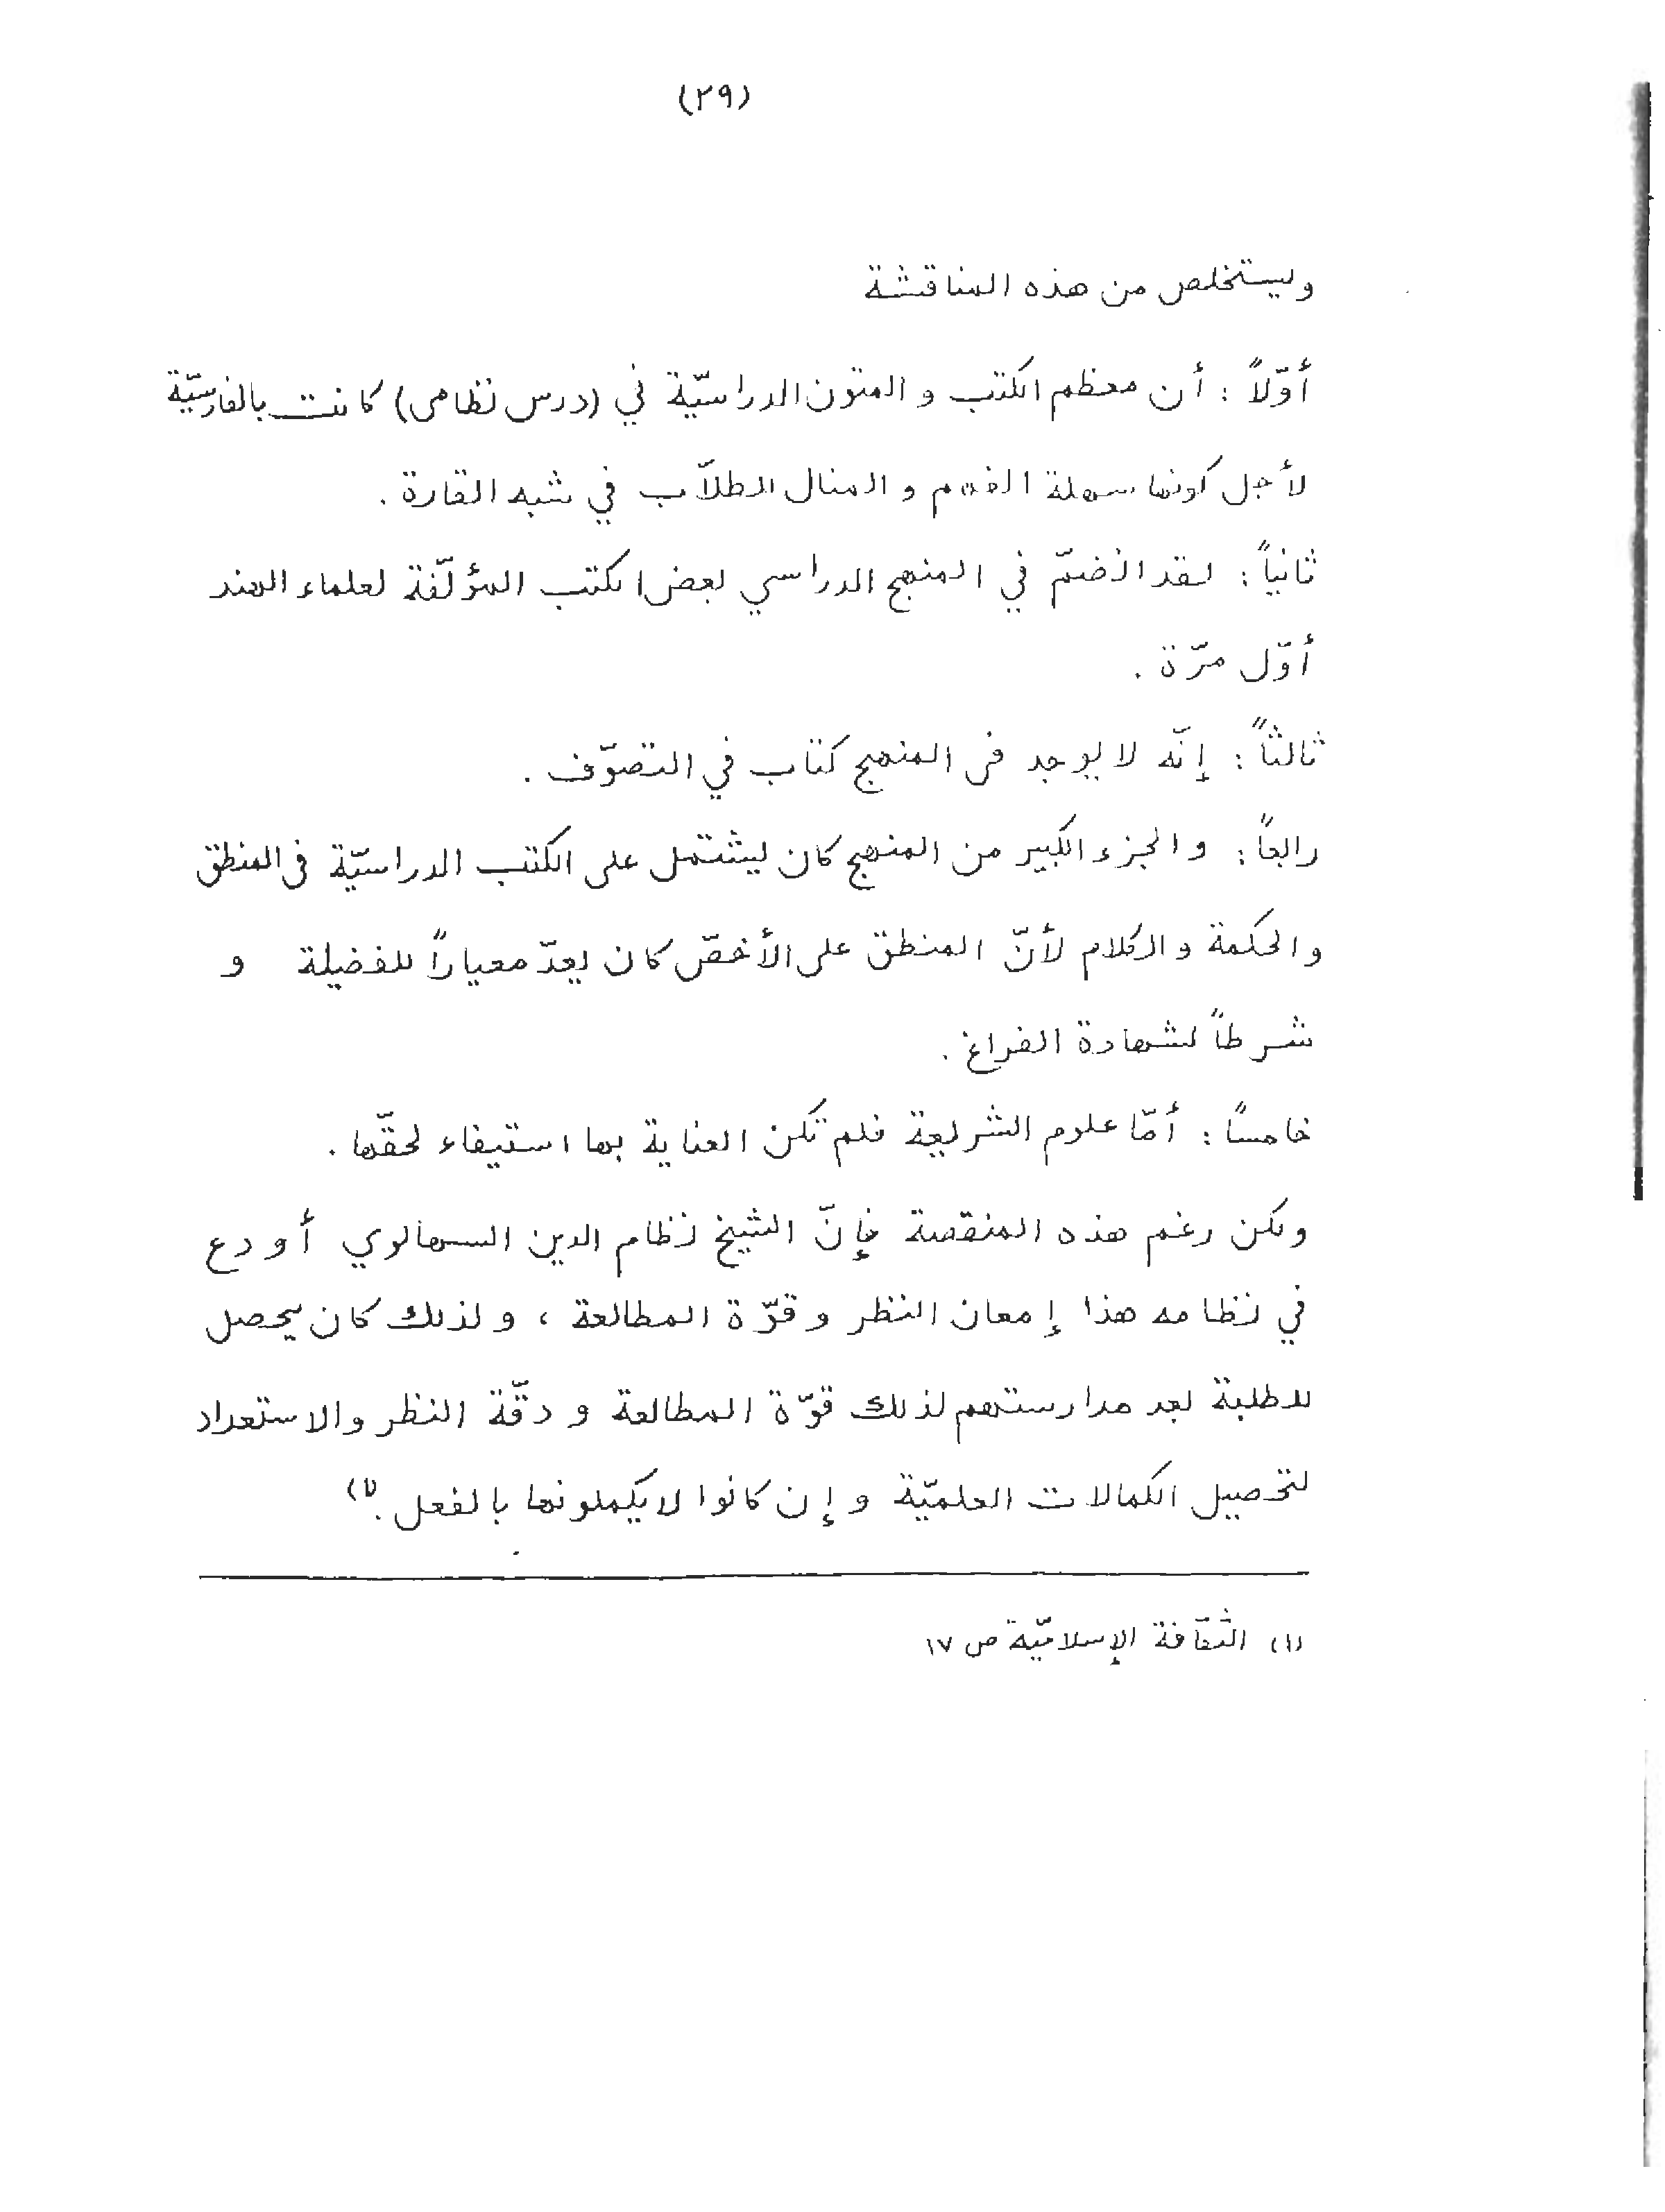 (٢٩)
ويستخلص من هذه المناقشة
أوّلاً : أن معظم الكتب و المتون الدراسيّة في (درس نظامى) كانت بالفارسيّة
لأجل كونها سهلة الفهم و المنال الطلاّب في شبه القارة .
ثانياً : لقد انضمّ في المنهج الدراسي بعض الكتب المؤلّفة لعلماء الهند
أوّل مرّة .
ثالثاً : إنّه لا يوجد فى المنهج كتاب في التصوّف .
رابعاً : و الجزء الكبير من المنهج كان يشتمل على الكتب الدراسيّة فى المنطق
والحكمة و الكلام لأنّ المنطق على الأخصّ كان يعدّ معياراً للفضيلة و
شرطاً لشهادة الفراغ .
خامساً : أمّا علوم الشريعة فلم تكن العناية بها استيفاء لحقّها .
ولكن رغم هذه المنقصة فإنّ الشيخ نظام الدين السهالوي أودع
في نظامه هذا إمعان النظر و قوّة المطالعة ، و لذلك كان يحصل
للطلبة بعد مدارستهم لذلك قوّة المطالعة و دقّة النظر والاستعداد
لتحصيل الكمالات العلميّة و إن كانوا لا يكملونها بالفعل . (١)
(١) الثقافة الإسلاميّة ص ١٧